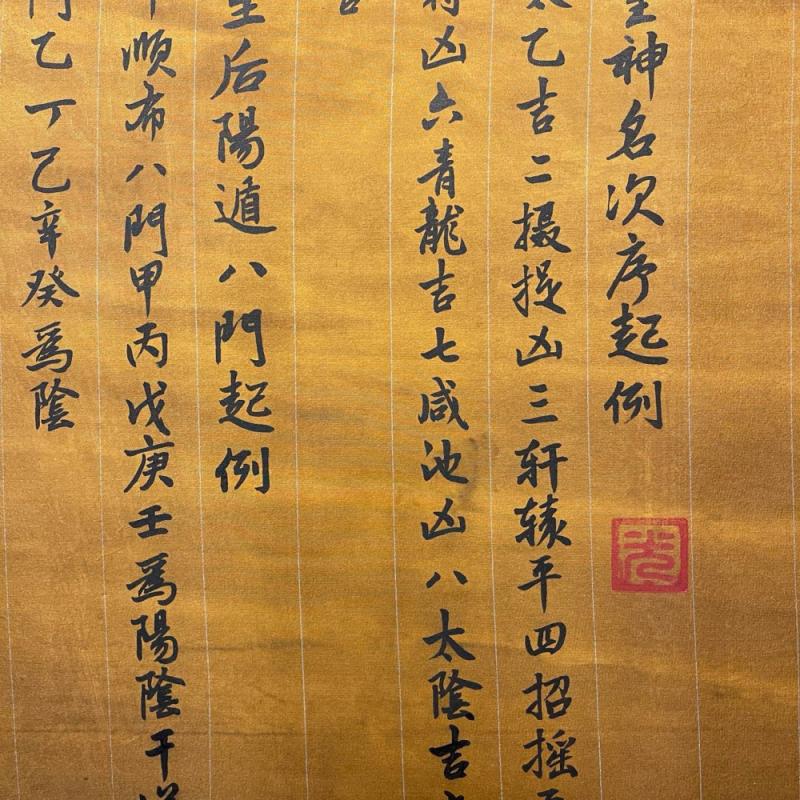 神名次序起例
乙吉二摄提凶三轩辕平四招摇
凶六青龍吉七咸池凶八太陰吉
后陽遁八門起例
順布八門甲丙戊庚壬為陽陰干
乙丁己辛癸為陰